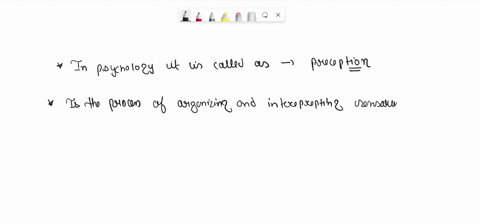 * In psychology it is called as → preception
* Is the process of organizing and interprepting sensare